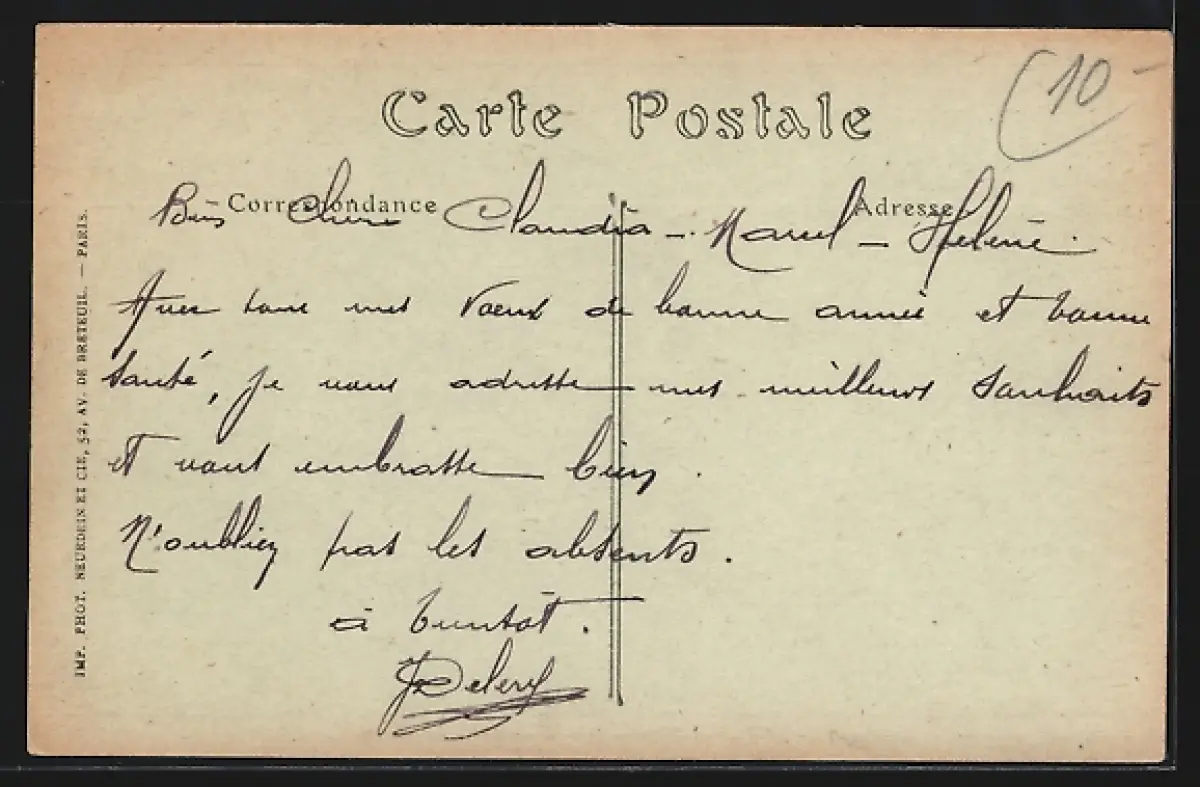 Carte Postale
10
Correspondance
Adresse
Bien Chers Claudia - Marcel - Hélène.
Avec tous mes Voeux de bonne année et bonne
santé, je vous adresse mes meilleurs souhaits
et vous embrasse bien.
N'oubliez pas les absents.
à bientôt.
IMP. PHOT. NEURDEIN ET CIE, 52, AV. DE BRETEUIL. — PARIS.